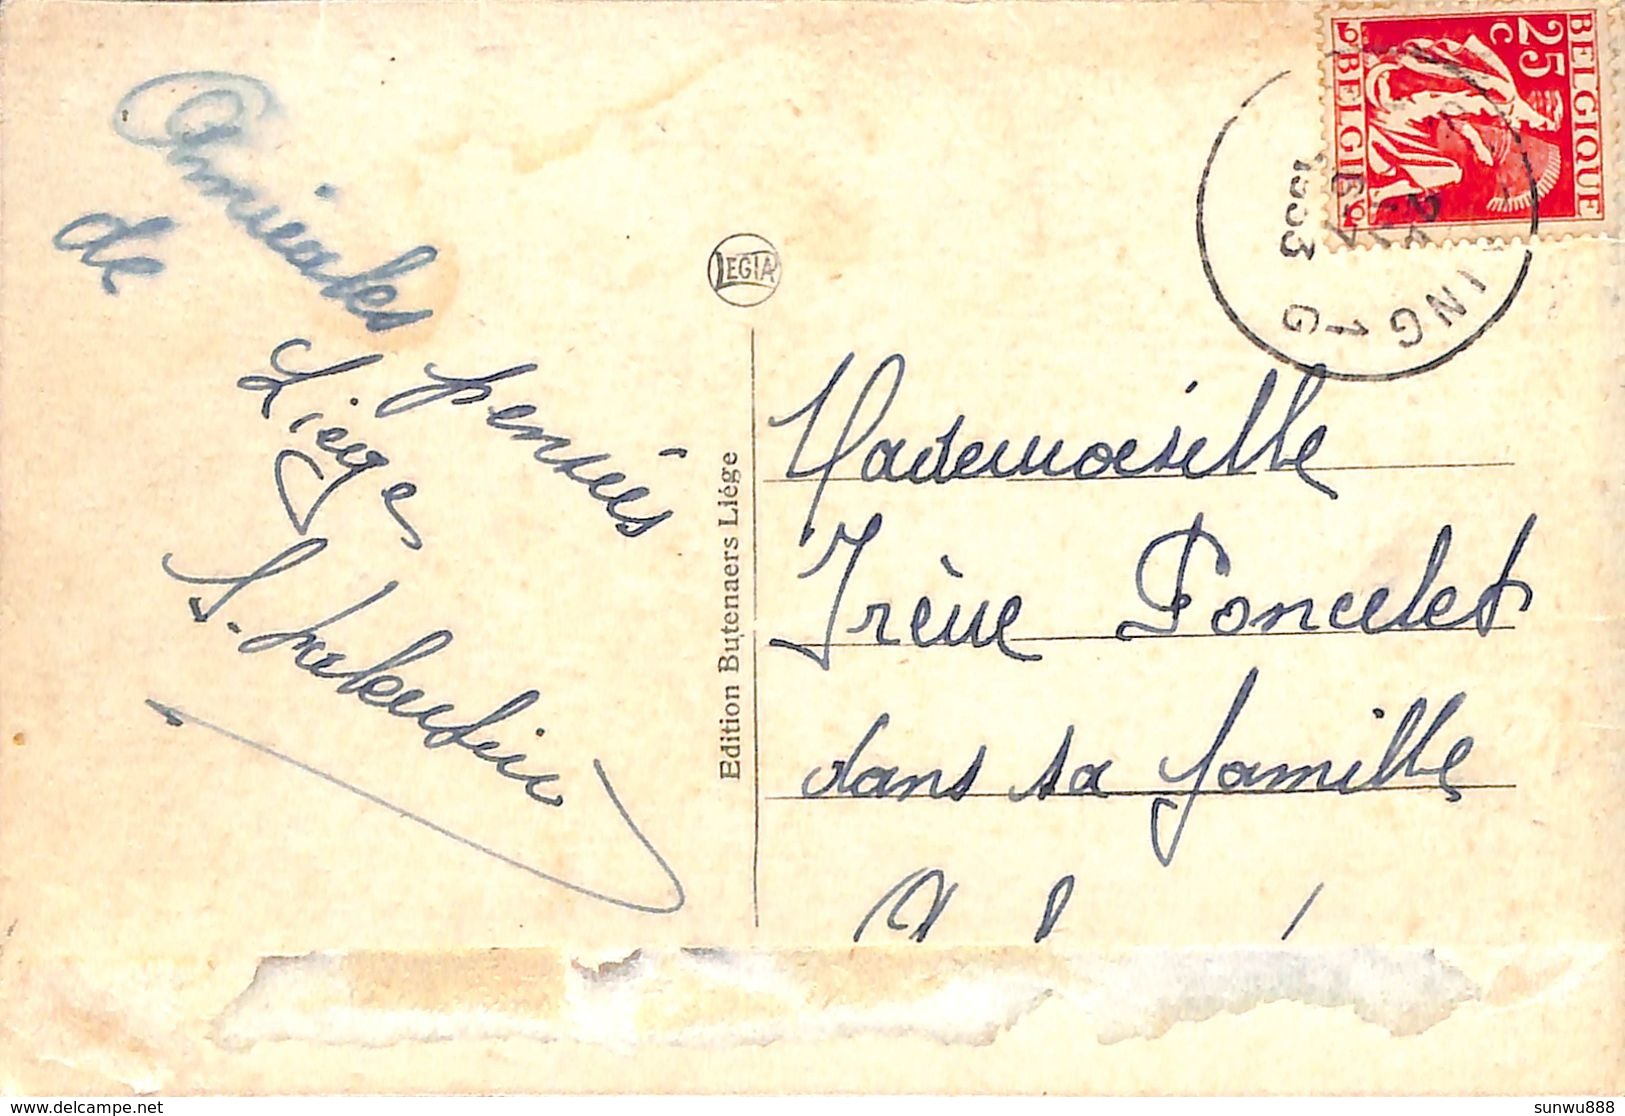 Amicales pensées
de Liège
LEGIA
Edition Butenaers Liége
BELGIQUE
25 c
BELGIE
1933
ING 1 G
Mademoiselle
Irène Poncelet
dans sa famille
sunwu888